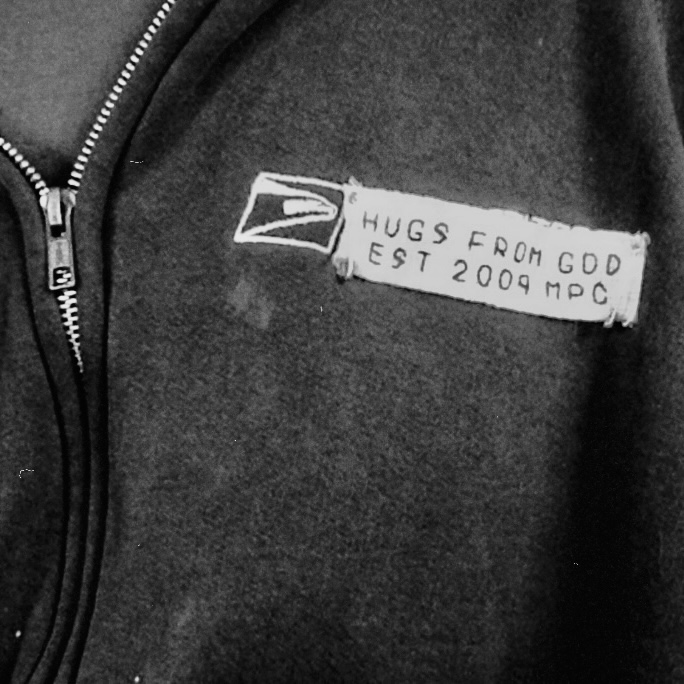 HUGS FROM GOD
EST 2009 MPC